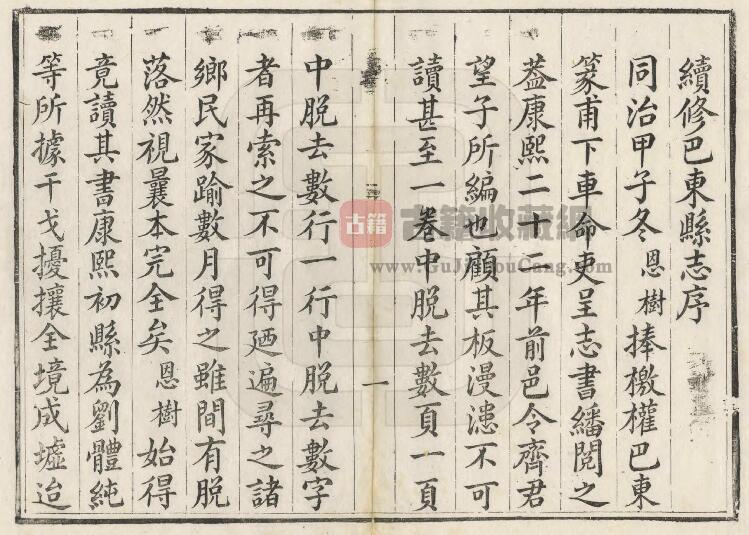 續修巴東縣志序
同治甲子冬恩樹捧檄權巴東
篆甫下車命吏呈志書繙閱之
葢康熙二十二年前邑令齊君
望子所編也顧其板漫漶不可
讀甚至一卷中脱去數頁一頁
一
中脱去數行一行中脱去數字
者再索之不可得廼遍尋之諸
鄉民家踰數月得之雖間有脱
落然視曩本完全矣恩樹始得
竟讀其書康熙初縣為劉體純
等所據干戈擾攘全境成墟迨
古籍
古籍收藏網
www.GuJiShouCang.com